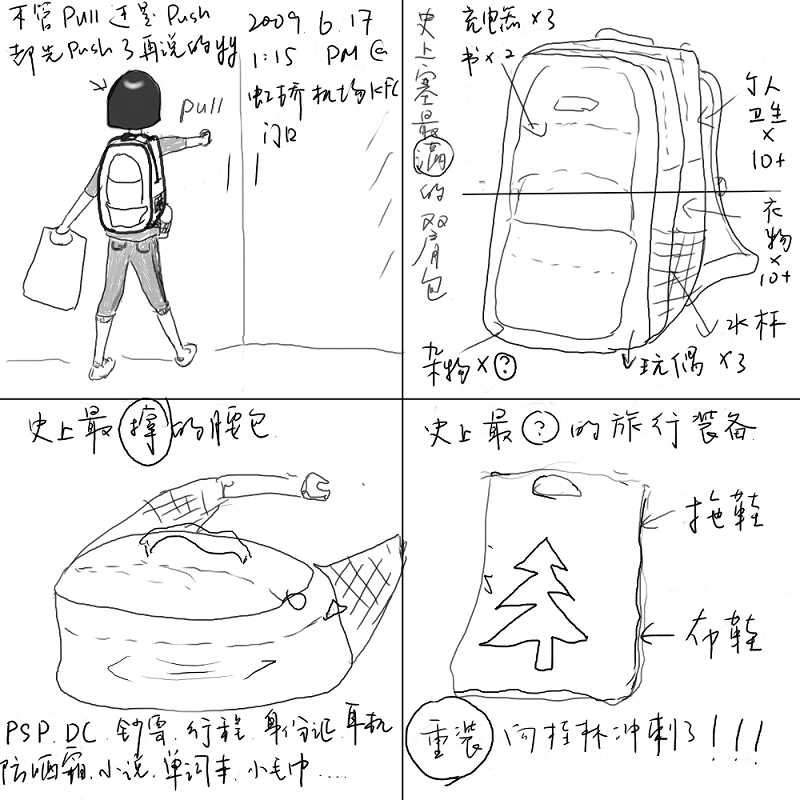 不管Pull还是Push
都先Push了再说的特
2009.6.17
1:15 PM @
虹桥机场KFC
门口
pull
史上塞最满的双肩包
充电器×3
书×2
个人卫生×10+
衣物×10+
水杯
玩偶×3
杂物×?
史上最撑的腰包
PSP.DC.钞票.行程.身份证.耳机
防晒霜.小说.单词本.小毛巾....
史上最?的旅行装备
拖鞋
布鞋
重装向桂林冲刺了!!!